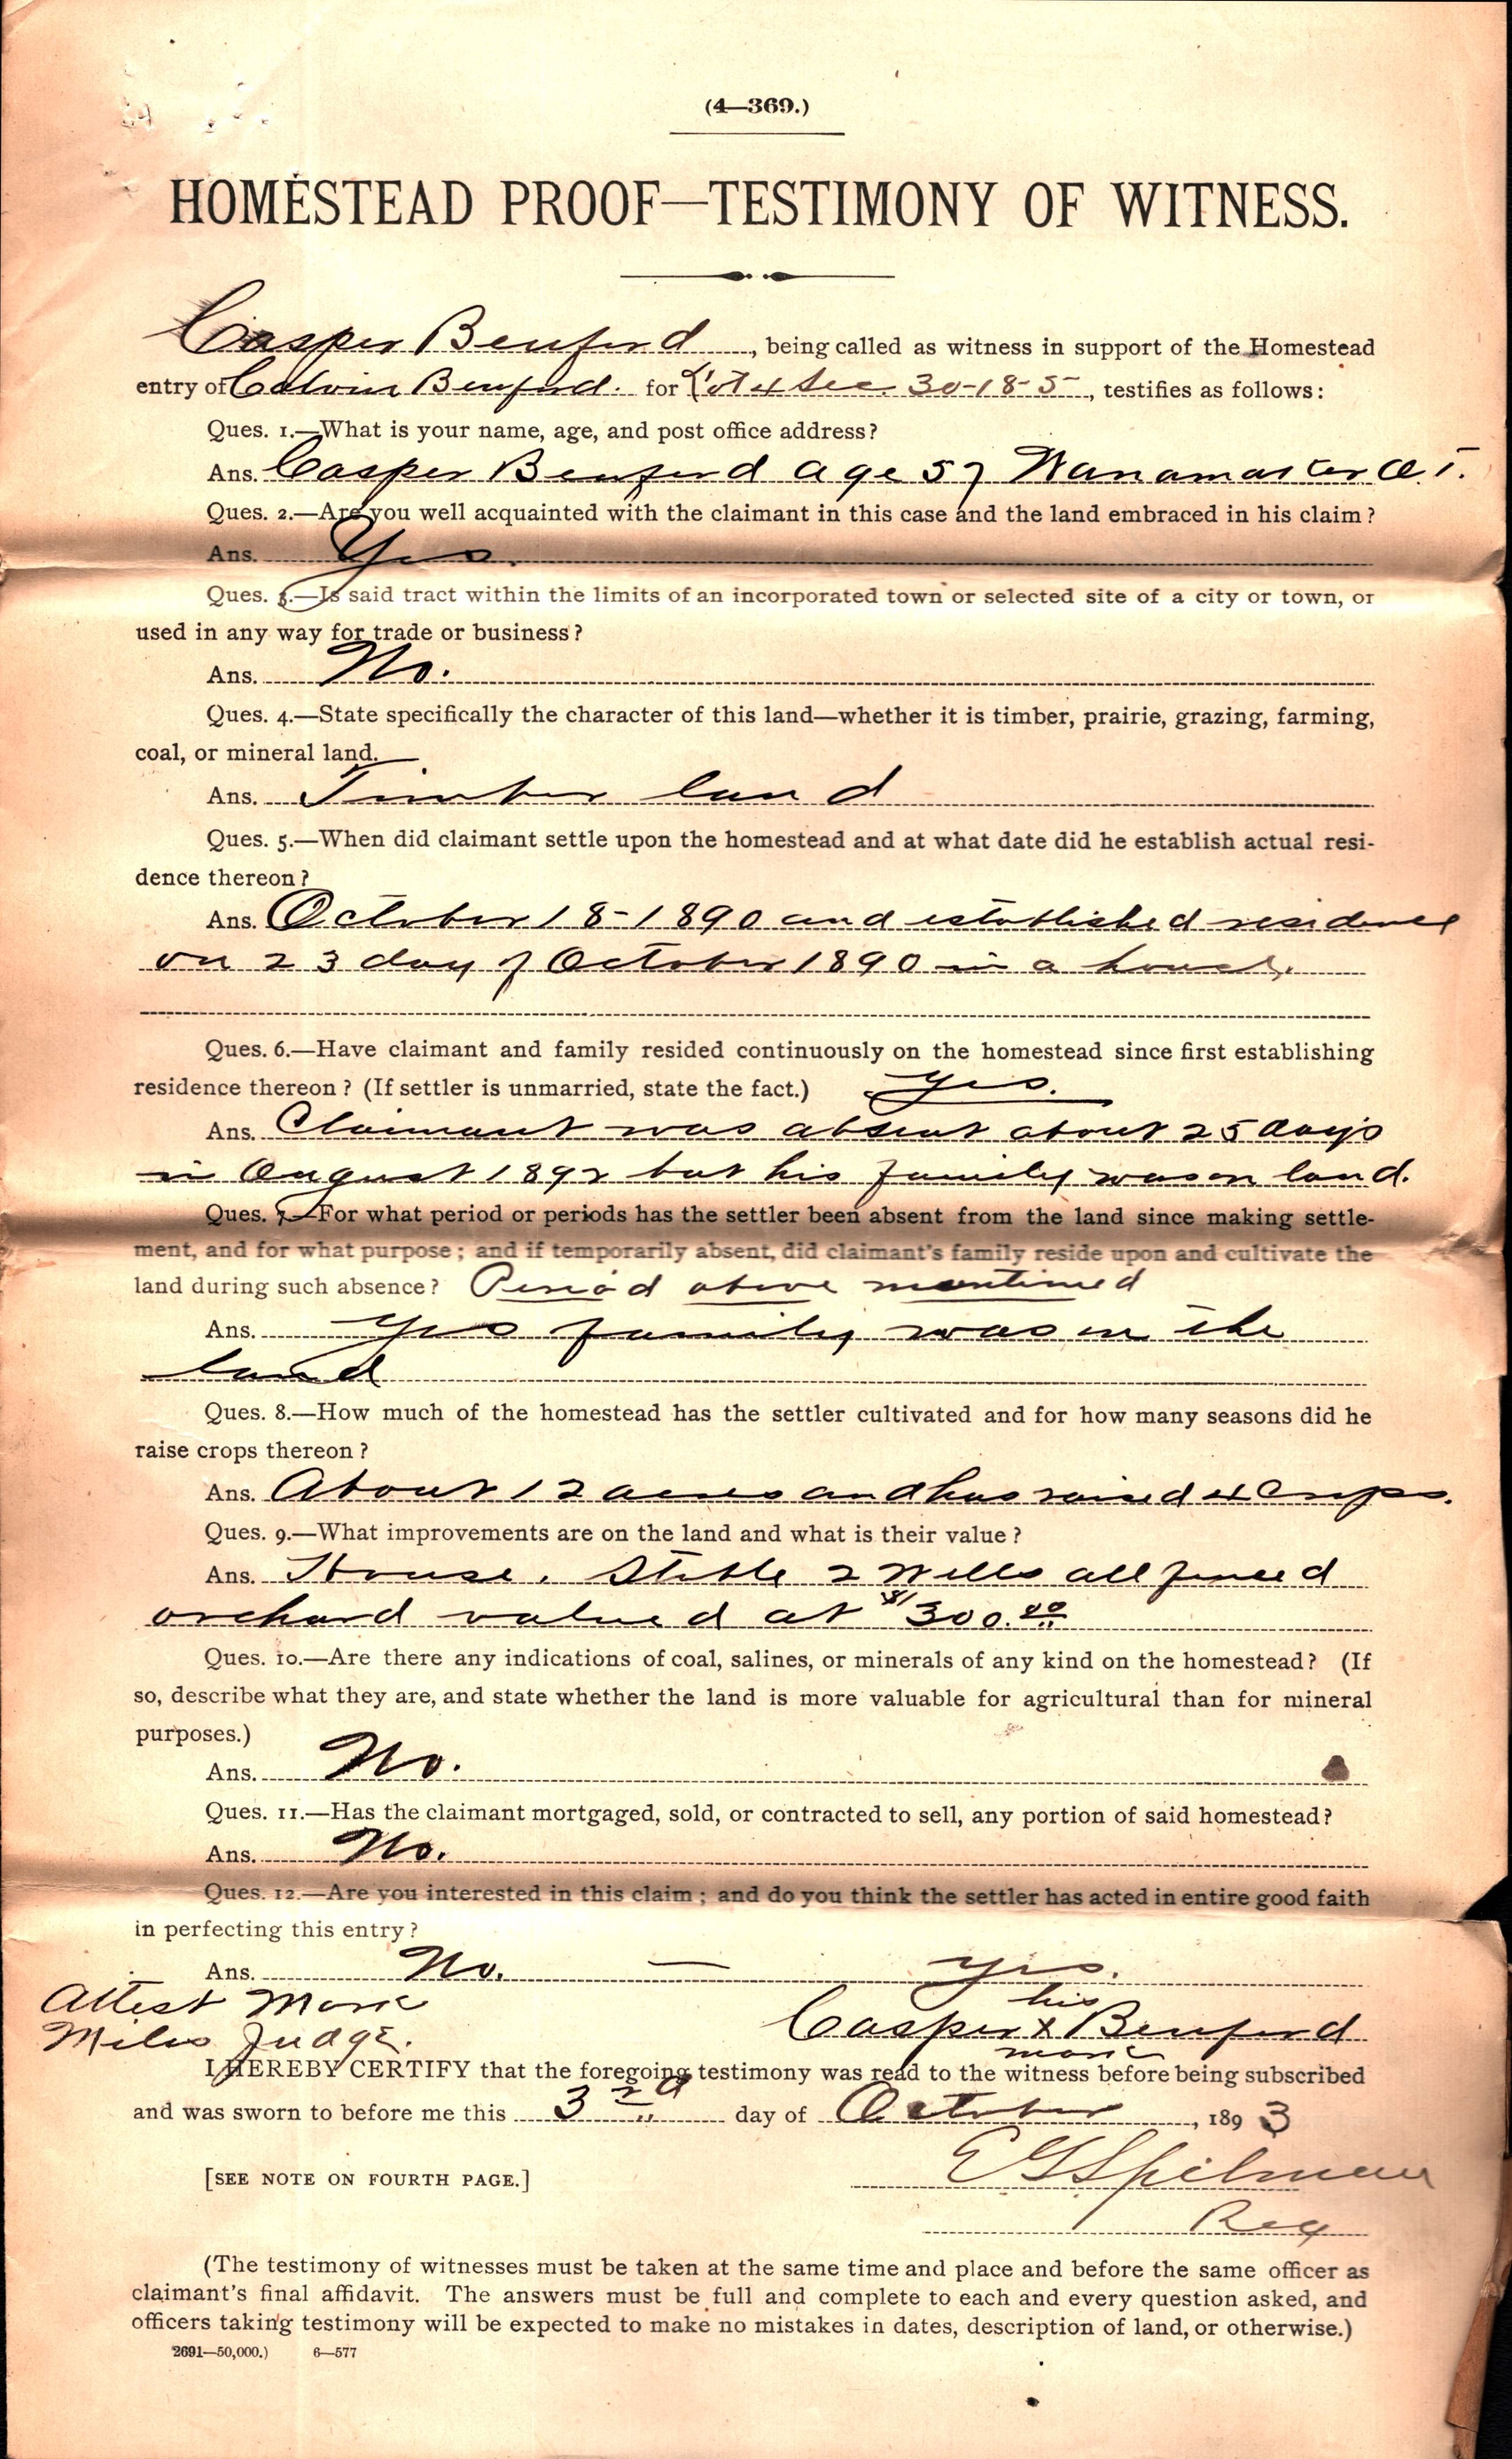 (4—369.)
HOMESTEAD PROOF—TESTIMONY OF WITNESS.
Casper Benford, being called as witness in support of the Homestead
entry of Calvin Benford. for Lot 4 Sec. 30-18-5, testifies as follows:
Ques. 1.—What is your name, age, and post office address?
Ans. Casper Benford age 57 Wanamaker O.T.
Ques. 2.—Are you well acquainted with the claimant in this case and the land embraced in his claim?
Ans. Yes.
Ques. 3.—Is said tract within the limits of an incorporated town or selected site of a city or town, or
used in any way for trade or business?
Ans. No.
Ques. 4.—State specifically the character of this land—whether it is timber, prairie, grazing, farming,
coal, or mineral land.
Ans. Timber land
Ques. 5.—When did claimant settle upon the homestead and at what date did he establish actual resi-
dence thereon?
Ans. October 18-1890 and established residence
on 23 day of October 1890 in a house.
Ques. 6.—Have claimant and family resided continuously on the homestead since first establishing
residence thereon? (If settler is unmarried, state the fact.) yes.
Ans. Claimant was absent about 25 days
in August 1892 but his family was on land.
Ques. 7.—For what period or periods has the settler been absent from the land since making settle-
ment, and for what purpose; and if temporarily absent, did claimant's family reside upon and cultivate the
land during such absence? Period above mentioned
Ans. yes family was on the
land
Ques. 8.—How much of the homestead has the settler cultivated and for how many seasons did he
raise crops thereon?
Ans. About 12 acres and has raised 4 Crops.
Ques. 9.—What improvements are on the land and what is their value?
Ans. House, Stable 2 Wells all fenced
orchard valued at $300.00
Ques. 10.—Are there any indications of coal, salines, or minerals of any kind on the homestead? (If
so, describe what they are, and state whether the land is more valuable for agricultural than for mineral
purposes.)
Ans. No.
Ques. 11.—Has the claimant mortgaged, sold, or contracted to sell, any portion of said homestead?
Ans. No.
Ques. 12.—Are you interested in this claim; and do you think the settler has acted in entire good faith
in perfecting this entry?
Ans. No. — yes.
Attest Mark
his
Casper X Benford
Miles Judge.
mark
I HEREBY CERTIFY that the foregoing testimony was read to the witness before being subscribed
and was sworn to before me this 3rd day of October, 1893
[SEE NOTE ON FOURTH PAGE.] E G Spilman
Reg
(The testimony of witnesses must be taken at the same time and place and before the same officer as
claimant's final affidavit. The answers must be full and complete to each and every question asked, and
officers taking testimony will be expected to make no mistakes in dates, description of land, or otherwise.)
2691—50,000.) 6—577